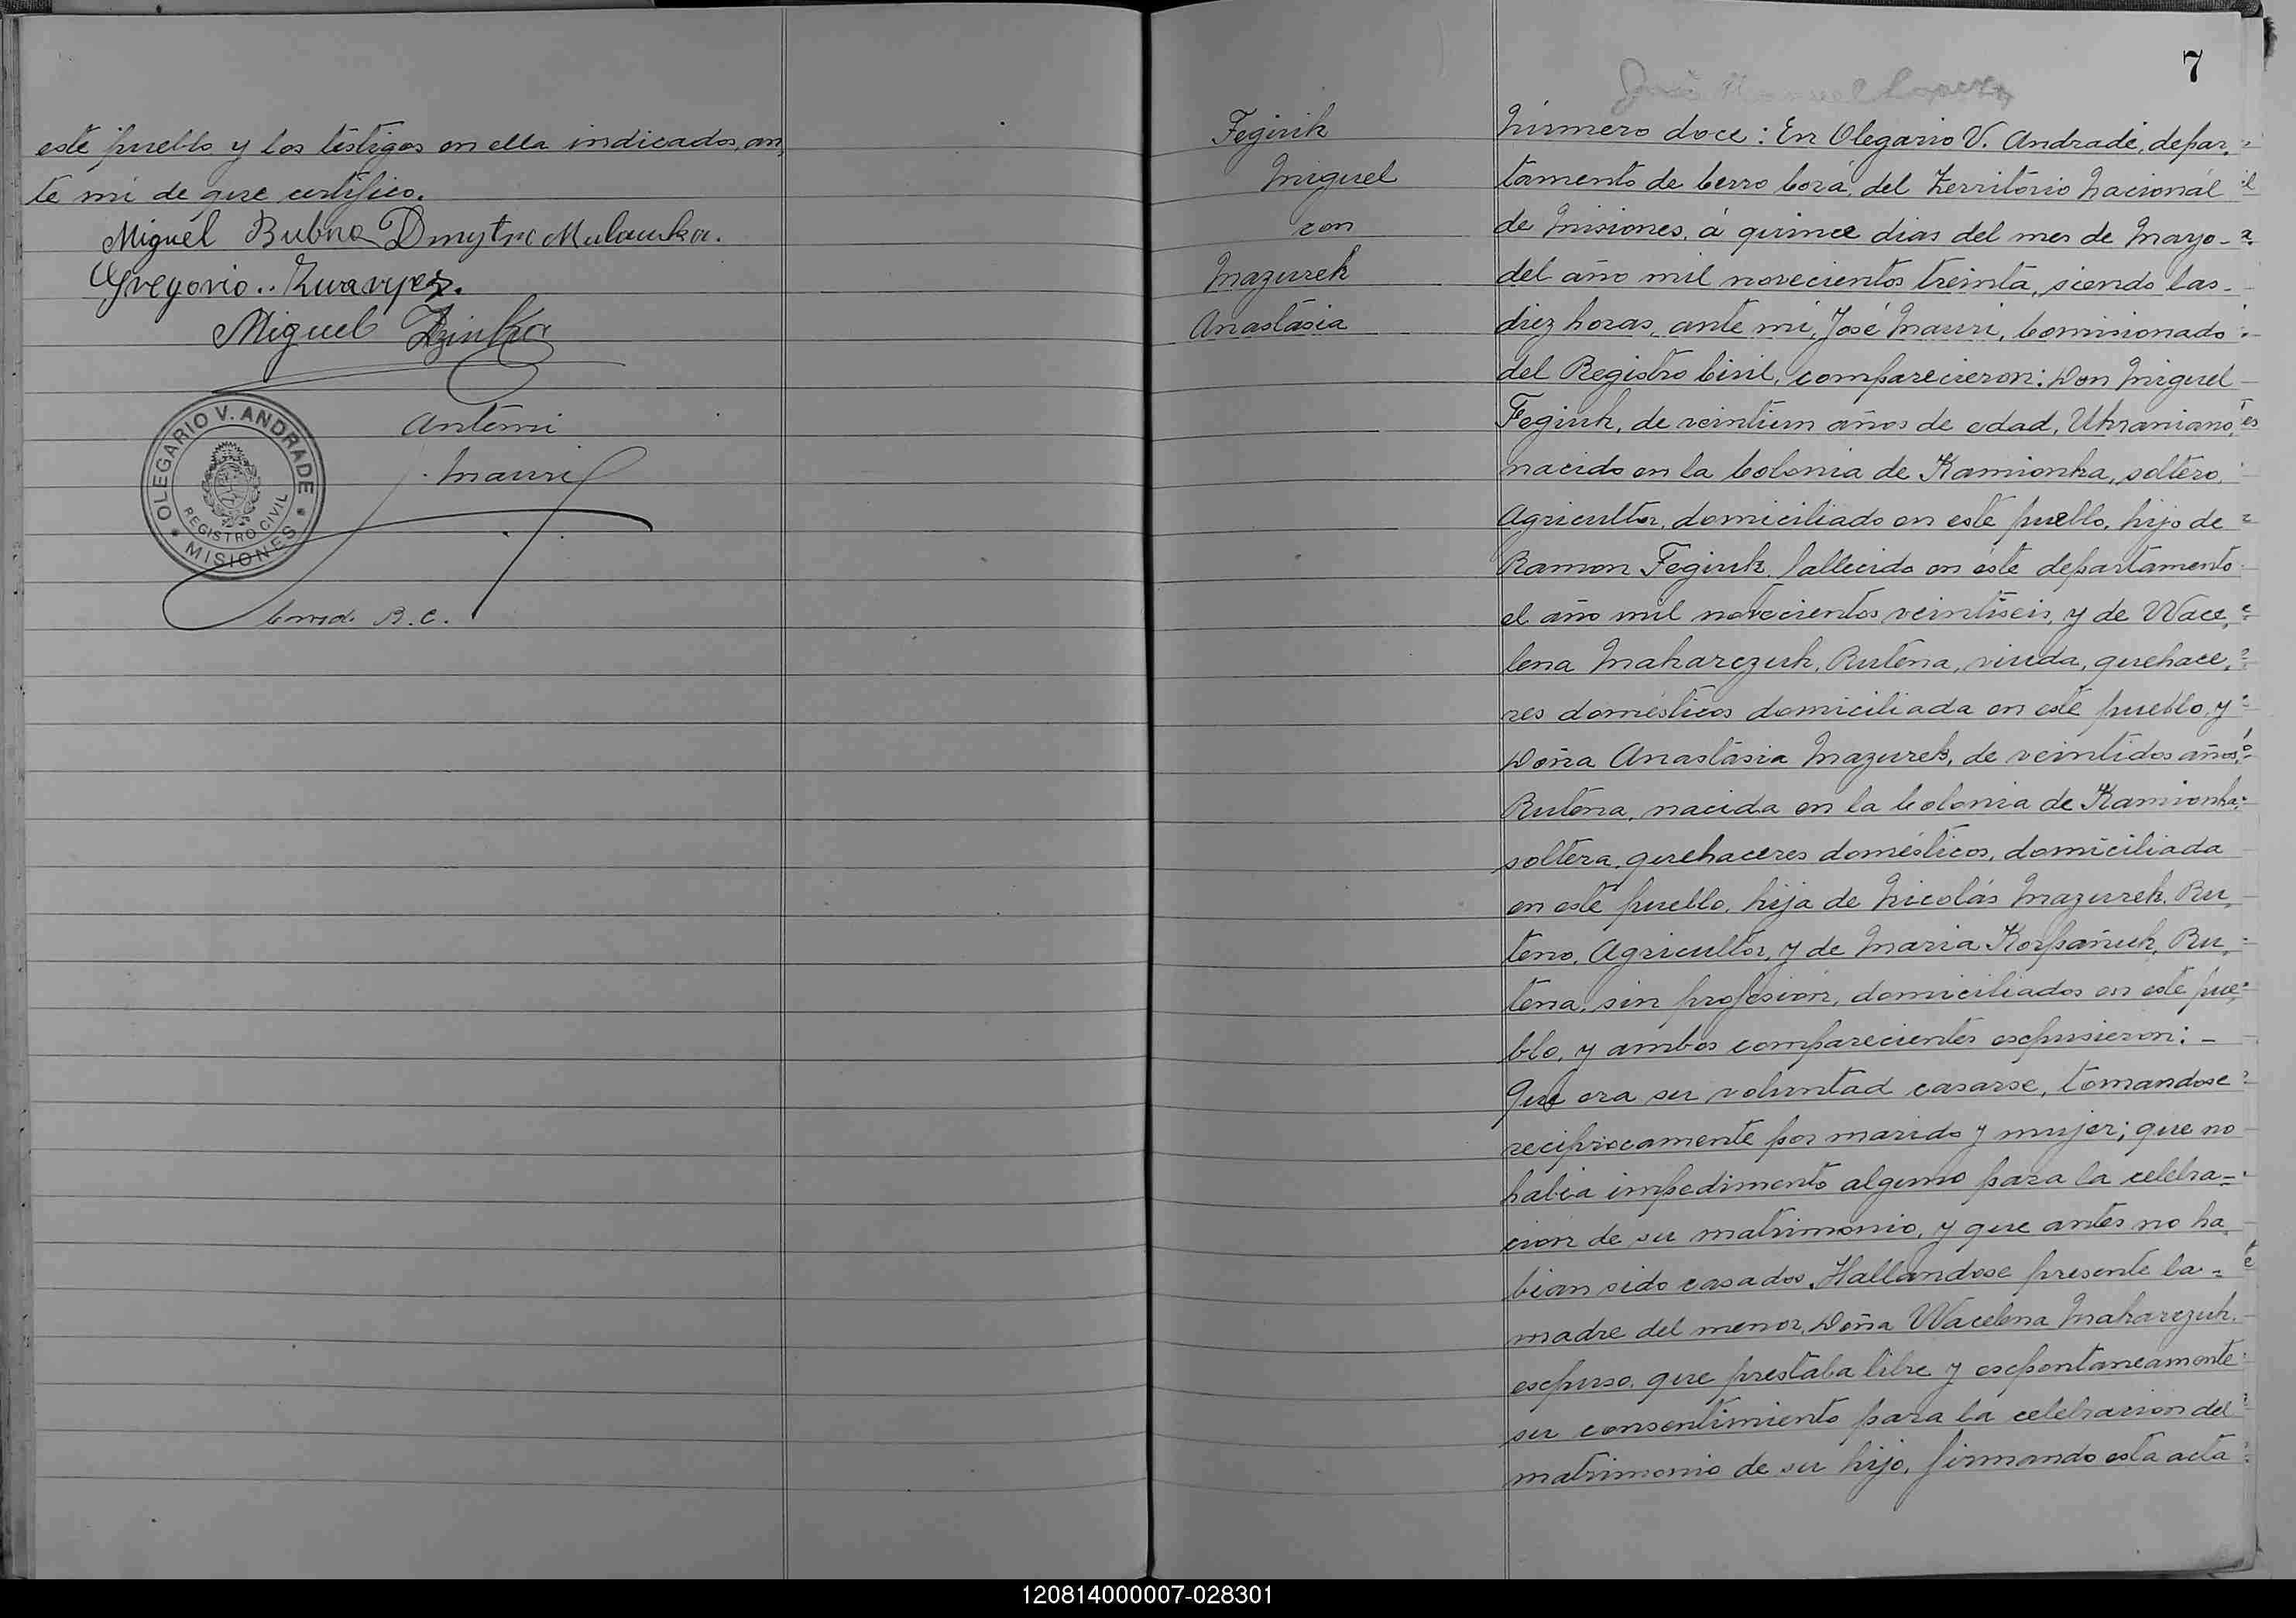 este pueblo y los testigos en ella indicados, an,
te mi de que certifico.
Miguel Bubna Dmytro
Gregorio
Miguel
OLEGARIO V. ANDRADE
REGISTRO CIVIL
MISIONES
Antemi
Mauri
Comdo. R. C.
7
José Manuel
Fegiuk
Miguel
con
Mazurek
Anastasia
Número doce: En Olegario V. Andrade, depar,
tamento de Cerro Corá, del Territorio Nacional
de Misiones, á quince dias del mes de Mayo
del año mil novecientos treinta, siendo las
diez horas, ante mi, José Mauri, Comisionado
del Registro Civil, comparecieron: Don Miguel
Fegiuk, de veintiun años de edad, Ukraniano,
nacido en la Colonia de Kamionka, soltero,
Agricultor, domiciliado en este pueblo, hijo de
Ramon Fegiuk, fallecido en éste departamento
el año mil novecientos veintiseis, y de Wace,
lena Makarczuk, Rutena, viuda, quehace,
res domésticos domiciliada en este pueblo, y
Doña Anastasia Mazurek, de veintidos años,
Rutena, nacida en la Colonia de Kamionka,
soltera, quehaceres domésticos, domiciliada
en este pueblo, hija de Nicolás Mazurek, Ru,
teno, Agricultor, y de Maria Korpañuk, Ru,
tena, sin profesion, domiciliados en este pue,
blo, y ambos comparecientes espusieron: –
Que era su voluntad casarse, tomandose
reciprocamente por marido y mujer; que no
habia impedimento alguno para la celebra=
cion de su matrimonio, y que antes no ha,
bian sido casados. Hallandose presente la =
madre del menor, Doña Wacelena Makarczuk,
espuso, que prestaba libre y espontaneamente
su consentimiento para la celebracion del
matrimonio de su hijo, firmando esta acta
120814000007-028301